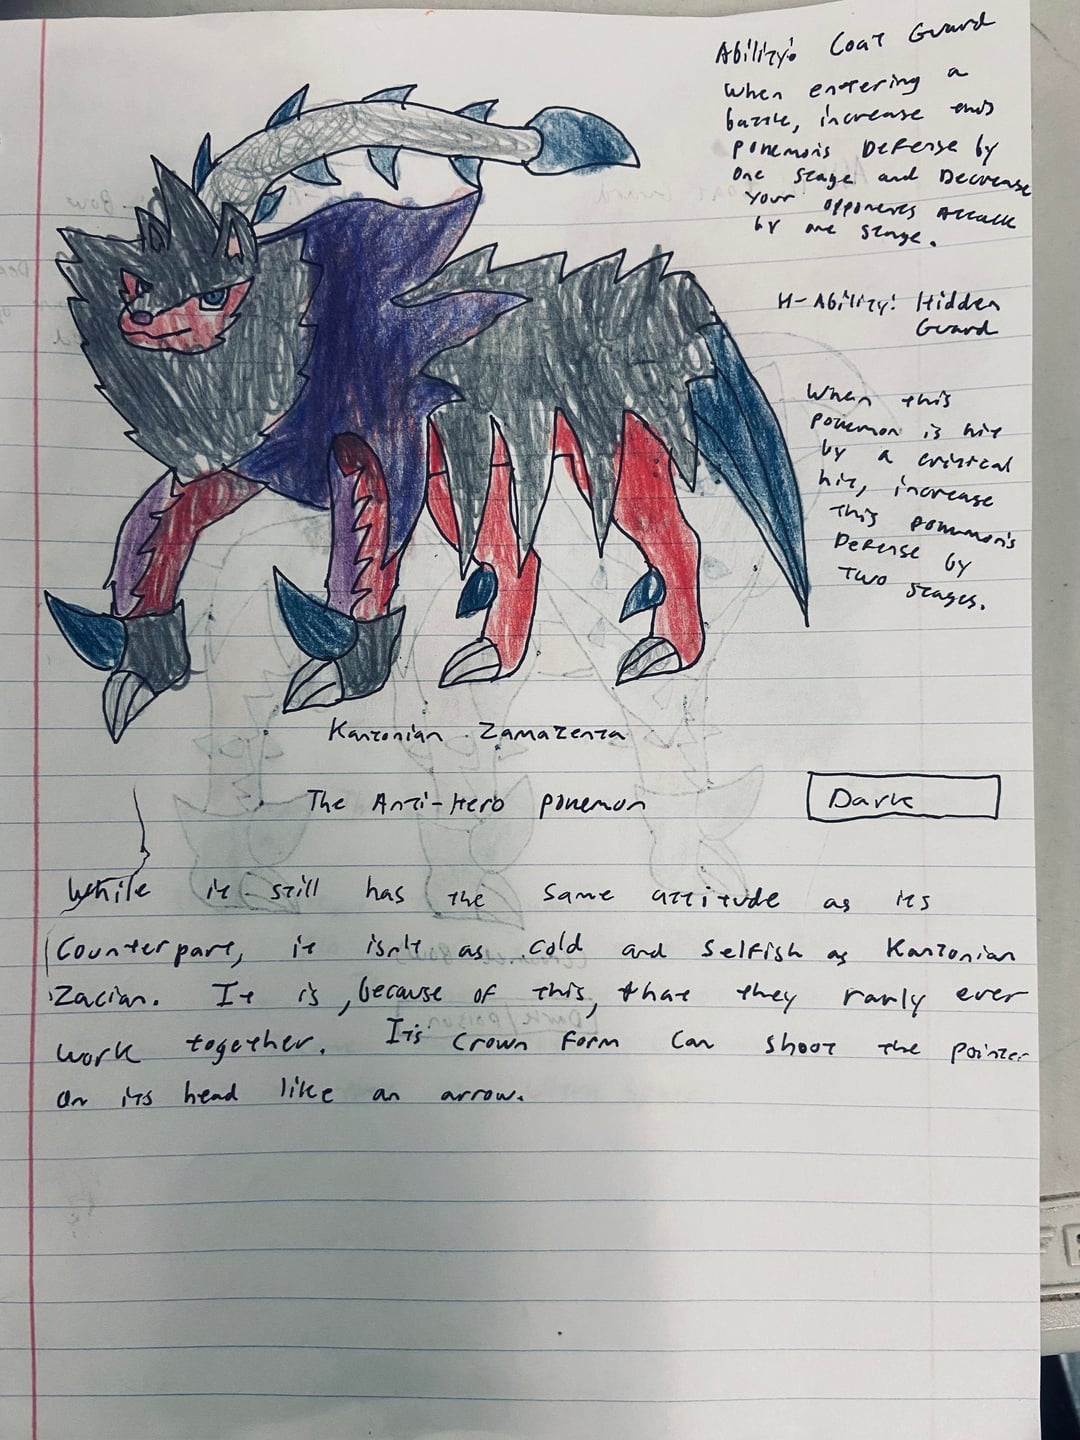 Ability: Coat Guard
When entering a
battle, increase this
Pokemon's Defense by
one stage and Decrease
your opponents Attack
by one stage.
H-Ability: Hidden
Guard
When this
pokemon is hit
by a critical
hit, increase
this pokemon's
Defense by
two stages.
Kantonian Zamazenta
The Anti-Hero pokemon
Dark
While it still has the same attitude as its
counterpart, it isn't as cold and selfish as Kantonian
Zacian. It is, because of this, that they rarly ever
work together. Its crown form can shoot the pointer
on its head like an arrow.